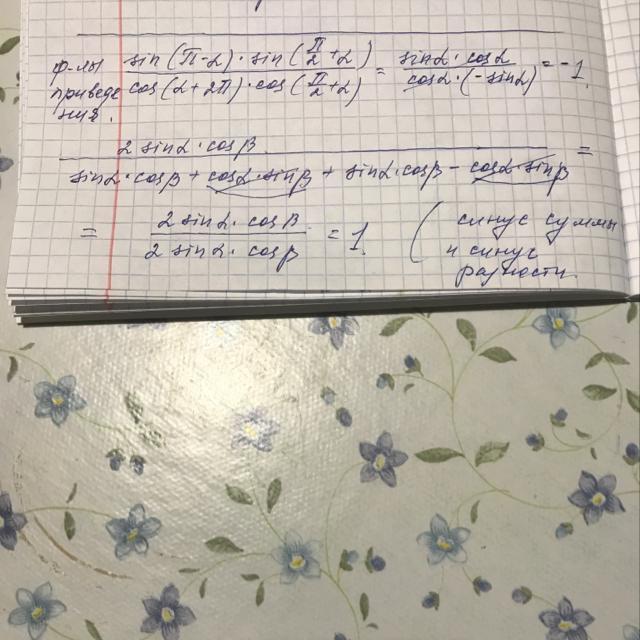 ф-лы sin(π-α)·sin(π/2+α) / cos(α+2π)·cos(π/2+α) = sinα·cosα / cosα·(-sinα) = -1.
приведе
ния.
2 sinα·cosβ / sinα·cosβ + cosα·sinβ + sinα·cosβ - cosα·sinβ =
= 2 sinα·cosβ / 2 sinα·cosβ = 1. ( синус суммы
и синус
разности.